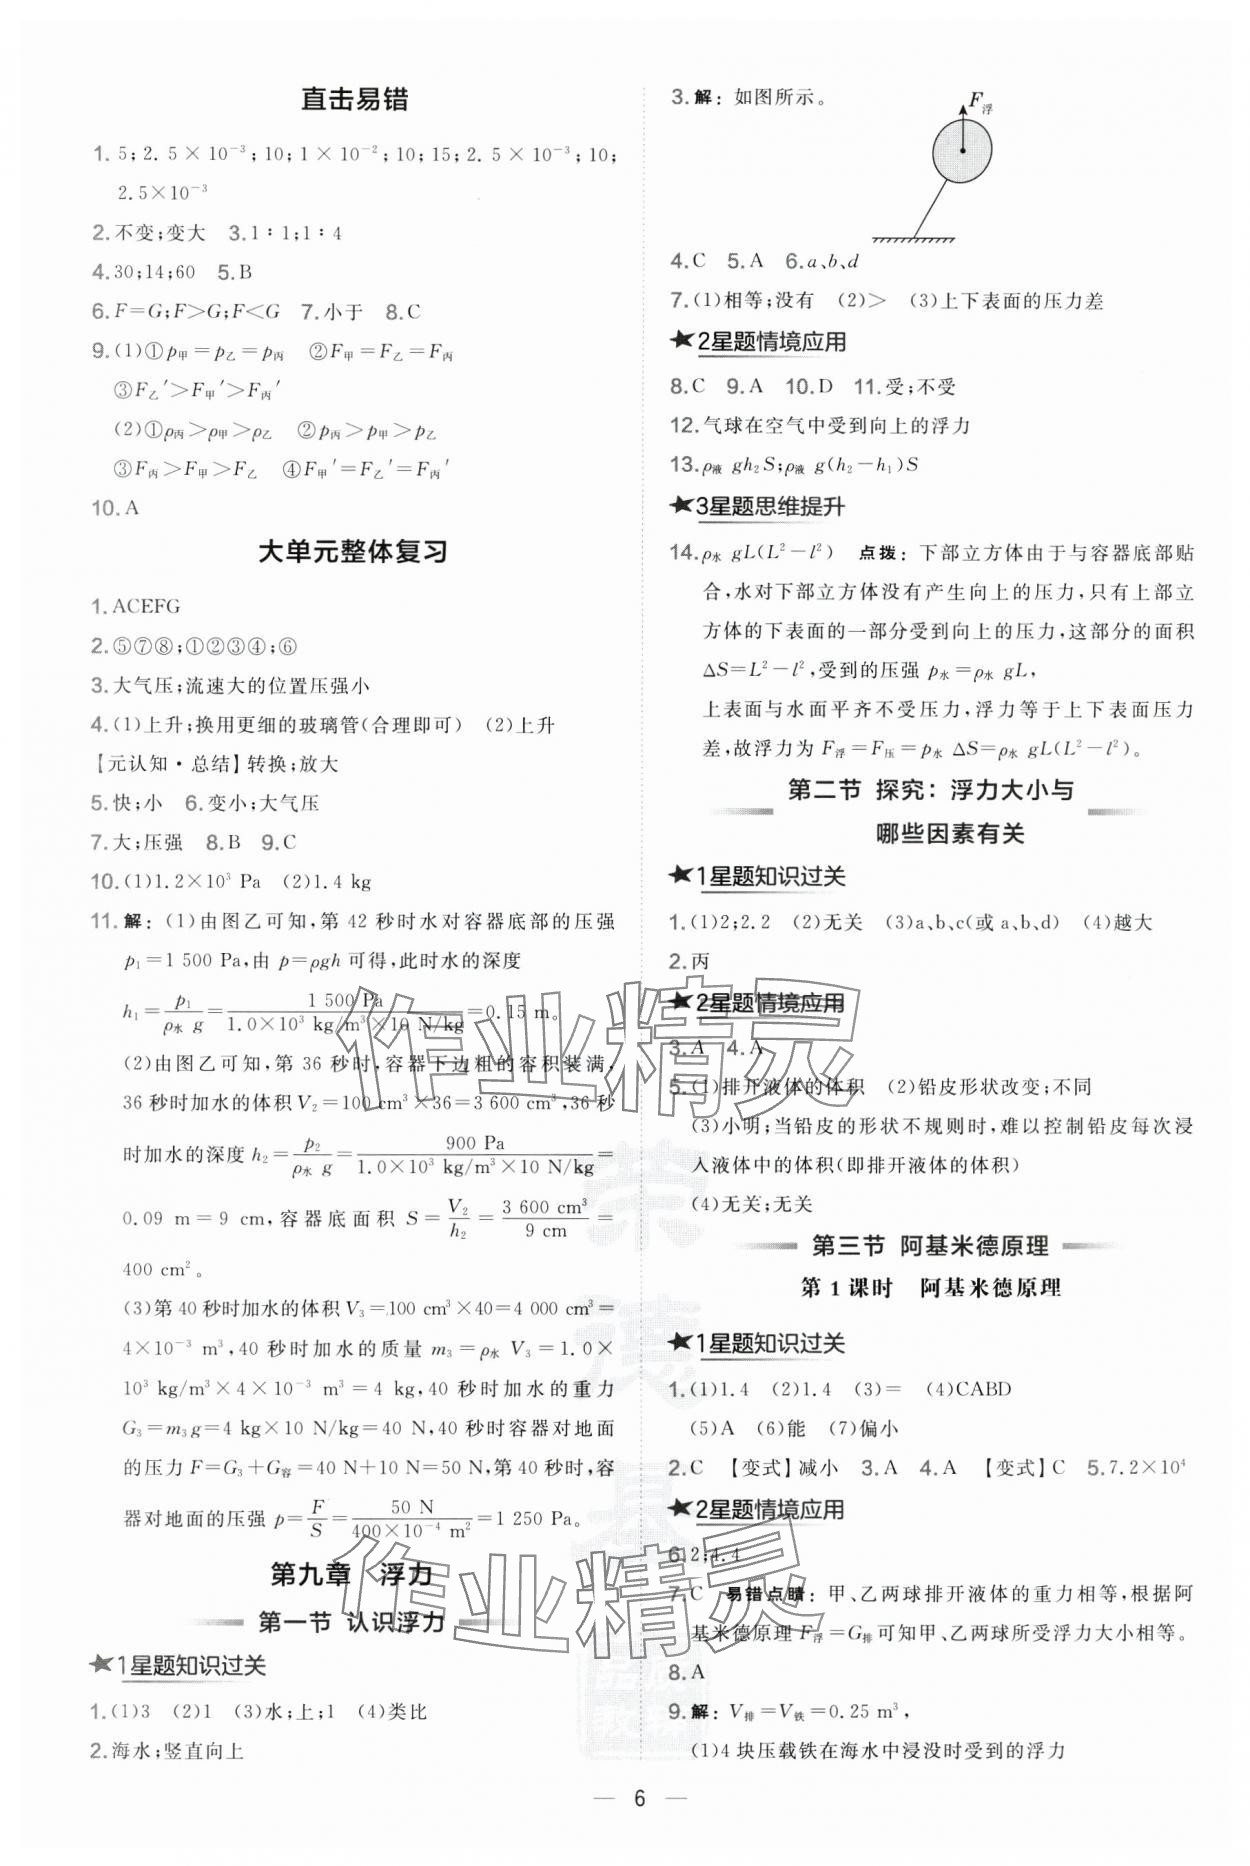 直击易错
1. 5;2.5×10⁻³;10;1×10⁻²;10;15;2.5×10⁻³;10;
2.5×10⁻³
2. 不变;变大 3. 1∶1;1∶4
4. 30;14;60 5. B
6. F=G;F>G;F<G 7. 小于 8. C
9. (1)①p甲=p乙=p丙 ②F甲=F乙=F丙
③F乙′>F甲′>F丙′
(2)①ρ丙>ρ甲>ρ乙 ②p丙>p甲>p乙
③F丙>F甲>F乙 ④F甲′=F乙′=F丙′
10. A
大单元整体复习
1. ACEFG
2. ⑤⑦⑧;①②③④;⑥
3. 大气压;流速大的位置压强小
4. (1)上升;换用更细的玻璃管(合理即可) (2)上升
【元认知·总结】转换;放大
5. 快;小 6. 变小;大气压
7. 大;压强 8. B 9. C
10. (1)1.2×10³ Pa (2)1.4 kg
11. 解：(1)由图乙可知,第 42 秒时水对容器底部的压强
p₁=1 500 Pa,由 p=ρgh 可得,此时水的深度
h₁=p₁/(ρ水 g)=1 500 Pa/(1.0×10³ kg/m³×10 N/kg)=0.15 m。
(2)由图乙可知,第 36 秒时,容器下边粗的容积装满,
36 秒时加水的体积 V₂=100 cm³×36=3 600 cm³,36 秒
时加水的深度 h₂=p₂/(ρ水 g)=900 Pa/(1.0×10³ kg/m³×10 N/kg)=
0.09 m=9 cm,容器底面积 S=V₂/h₂=3 600 cm³/9 cm=
400 cm²。
(3)第 40 秒时加水的体积 V₃=100 cm³×40=4 000 cm³=
4×10⁻³ m³,40 秒时加水的质量 m₃=ρ水 V₃=1.0×
10³ kg/m³×4×10⁻³ m³=4 kg,40 秒时加水的重力
G₃=m₃g=4 kg×10 N/kg=40 N,40 秒时容器对地面
的压力 F=G₃+G容=40 N+10 N=50 N,第 40 秒时,容
器对地面的压强 p=F/S=50 N/(400×10⁻⁴ m²)=1 250 Pa。
第九章 浮力
第一节 认识浮力
★1星题知识过关
1. (1)3 (2)1 (3)水;上;1 (4)类比
2. 海水;竖直向上
3. 解：如图所示。
F浮
4. C 5. A 6. a、b、d
7. (1)相等;没有 (2)> (3)上下表面的压力差
★2星题情境应用
8. C 9. A 10. D 11. 受;不受
12. 气球在空气中受到向上的浮力
13. ρ液 gh₂S;ρ液 g(h₂−h₁)S
★3星题思维提升
14. ρ水 gL(L²−l²) 点拨：下部立方体由于与容器底部贴
合,水对下部立方体没有产生向上的压力,只有上部立
方体的下表面的一部分受到向上的压力,这部分的面积
ΔS=L²−l²,受到的压强 p水=ρ水 gL,
上表面与水面平齐不受压力,浮力等于上下表面压力
差,故浮力为 F浮=F压=p水 ΔS=ρ水 gL(L²−l²)。
第二节 探究：浮力大小与
哪些因素有关
★1星题知识过关
1. (1)2;2.2 (2)无关 (3)a、b、c(或 a、b、d) (4)越大
2. 丙
★2星题情境应用
3. A 4. A
5. (1)排开液体的体积 (2)铅皮形状改变;不同
(3)小明;当铅皮的形状不规则时,难以控制铅皮每次浸
入液体中的体积(即排开液体的体积)
(4)无关;无关
第三节 阿基米德原理
第 1 课时 阿基米德原理
★1星题知识过关
1. (1)1.4 (2)1.4 (3)= (4)CABD
(5)A (6)能 (7)偏小
2. C 【变式】减小 3. A 4. A 【变式】C 5. 7.2×10⁴
★2星题情境应用
6. 2;4.4
7. C 易错点睛：甲、乙两球排开液体的重力相等,根据阿
基米德原理 F浮=G排可知甲、乙两球所受浮力大小相等。
8. A
9. 解：V排=V铁=0.25 m³,
(1)4 块压载铁在海水中浸没时受到的浮力
— 6 —
作业精灵
作业精灵